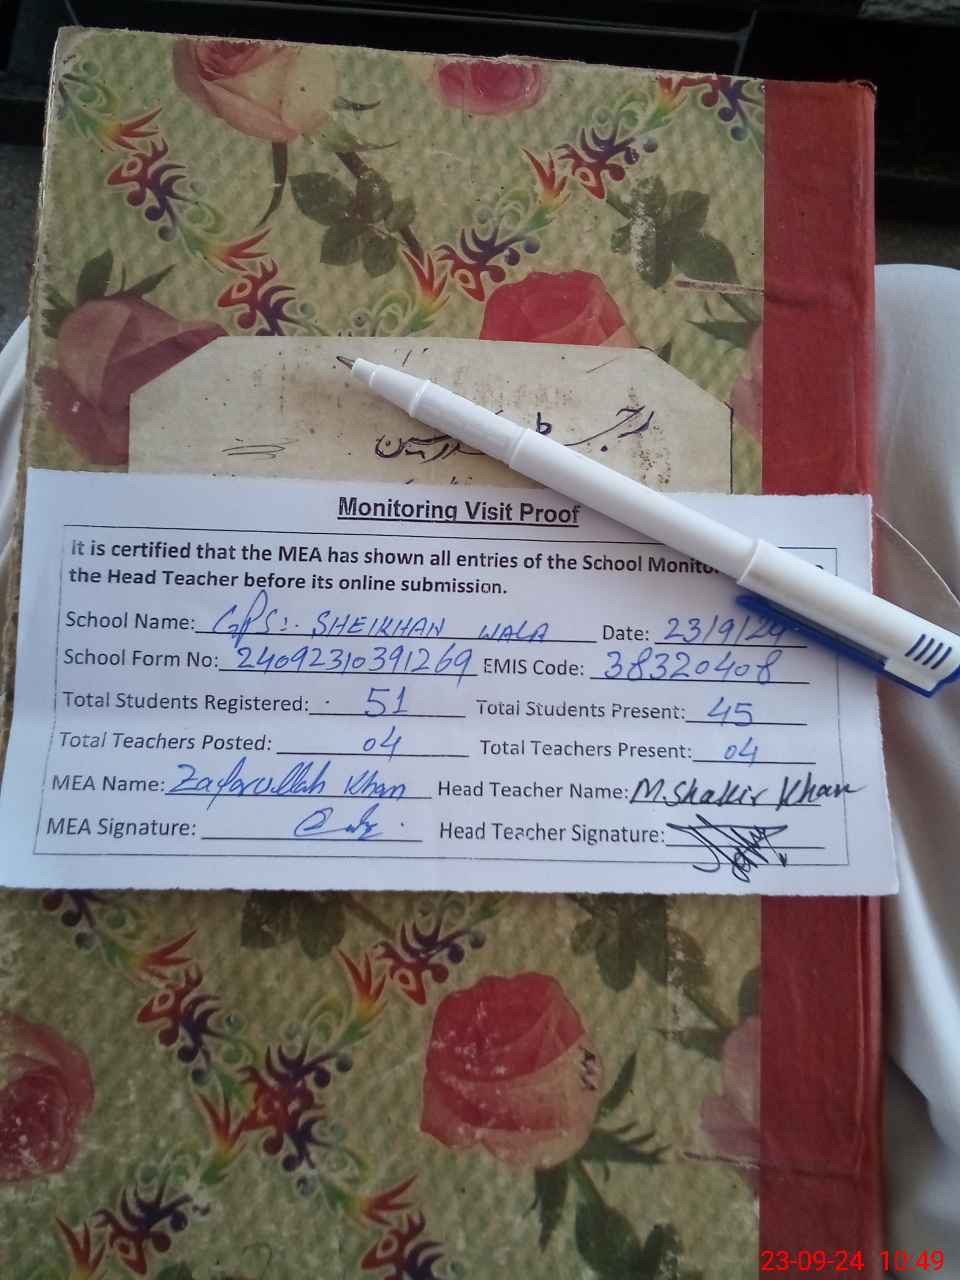 Monitoring Visit Proof
It is certified that the MEA has shown all entries of the School
the Head Teacher before its online submission.
School Name: GPS:. SHEIKHAN WALA Date: 23/9/24
School Form No: 2409231039 1269 EMIS Code: 38320408
Total Students Registered: 51 Total Students Present: 45
Total Teachers Posted: 04 Total Teachers Present: 04
MEA Name: Zafarullah Khan Head Teacher Name: M.Shakir Khan
MEA Signature: Head Teacher Signature:
23-09-24 10:49